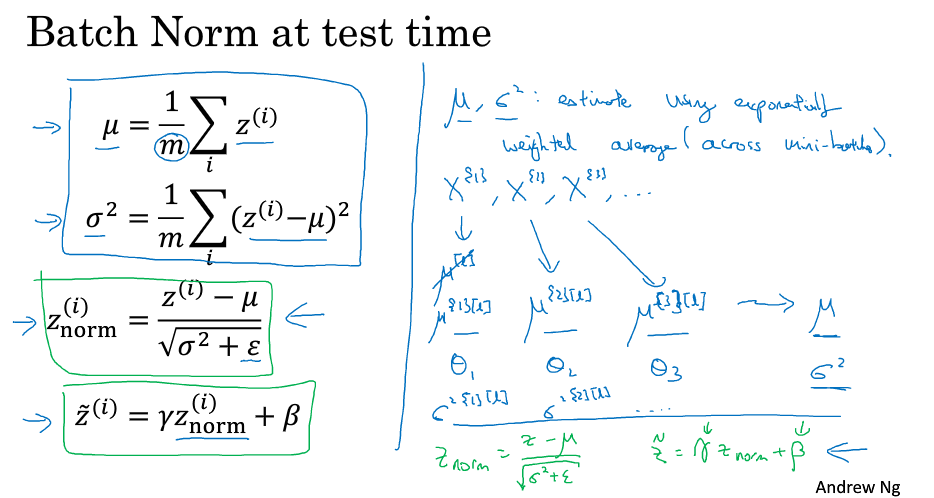 Batch Norm at test time
μ = 1/m ∑_i z^(i)
σ² = 1/m ∑_i (z^(i)−μ)²
z_norm^(i) = (z^(i) − μ) / √(σ² + ε)
z̃^(i) = γz_norm^(i) + β
μ, σ² : estimate using exponentially
weighted average (across mini-batches).
X^{1}, X^{2}, X^{3}, ...
μ^[l]
μ^{1}[l] μ^{2}[l] μ^{3}[l] → μ
θ₁ θ₂ θ₃ σ²
σ²^{1}[l] σ²^{2}[l] ....
z_norm = (z − μ) / √(σ²+ε) z̃ = γ z_norm + β
Andrew Ng